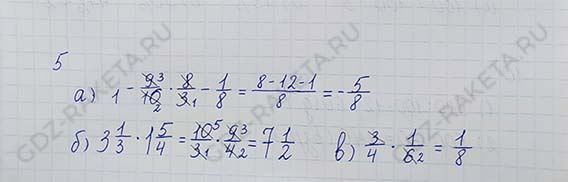 5
а) 1 - 9³/10₂ · 8/3₁ - 1/8 = (8-12-1)/8 = -5/8
б) 3 1/3 · 1 5/4 = 10⁵/3₁ · 9³/4₂ = 7 1/2 в) 3/4 · 1/6₂ = 1/8
GDZ-RAKETA.RU
GDZ-RAKETA.RU
GDZ-RAKETA.RU